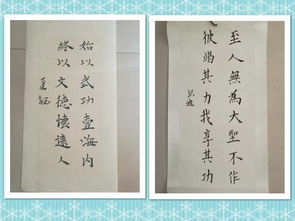 始以武功壹海內
終以文德懷遠人
至人無為大聖不作
彼竭其力我享其功